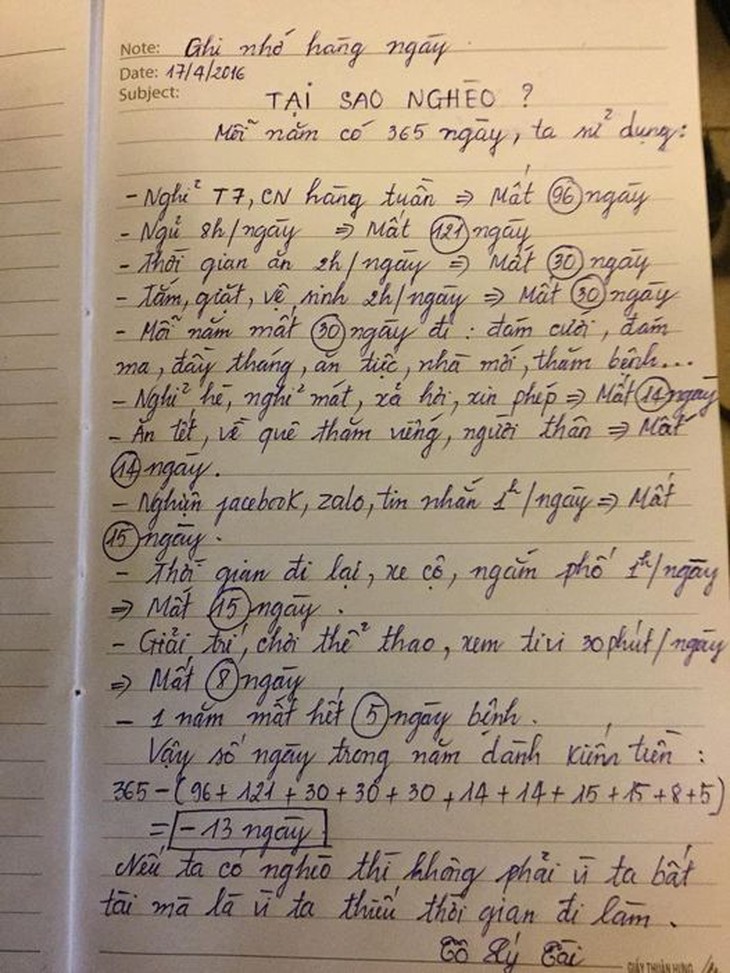 Note: Ghi nhớ hàng ngày.
Date: 17/4/2016
Subject:
TẠI SAO NGHÈO ?
Mỗi năm có 365 ngày, ta sử dụng:
- Nghỉ T7, CN hàng tuần => Mất 96 ngày
- Ngủ 8h/ngày => Mất 121 ngày
- Thời gian ăn 2h/ngày => Mất 30 ngày
- Tắm, giặt, vệ sinh 2h/ngày => Mất 30 ngày
- Mỗi năm mất 30 ngày đi : đám cưới, đám
ma, đầy tháng, ăn tiệc, nhà mới, thăm bệnh...
- Nghỉ hè, nghỉ mát, xả hơi, xin phép => Mất 14 ngày
- Ăn tết, về quê thăm viếng, người thân => Mất
14 ngày.
- Nghiện facebook, zalo, tin nhắn 1h/ngày => Mất
15 ngày.
- Thời gian đi lại, xe cộ, ngắm phố 1h/ngày
=> Mất 15 ngày.
- Giải trí, chơi thể thao, xem tivi 30 phút/ngày
=> Mất 8 ngày
- 1 năm mất hết 5 ngày bệnh.
Vậy số ngày trong năm dành kiếm tiền :
365 - (96 + 121 + 30 + 30 + 30 + 14 + 14 + 15 + 15 + 8 + 5)
= - 13 ngày
Nếu ta có nghèo thì không phải vì ta bất
tài mà là vì ta thiếu thời gian đi làm.
Tô Lý Tài
GIẤY THUẬN HƯNG